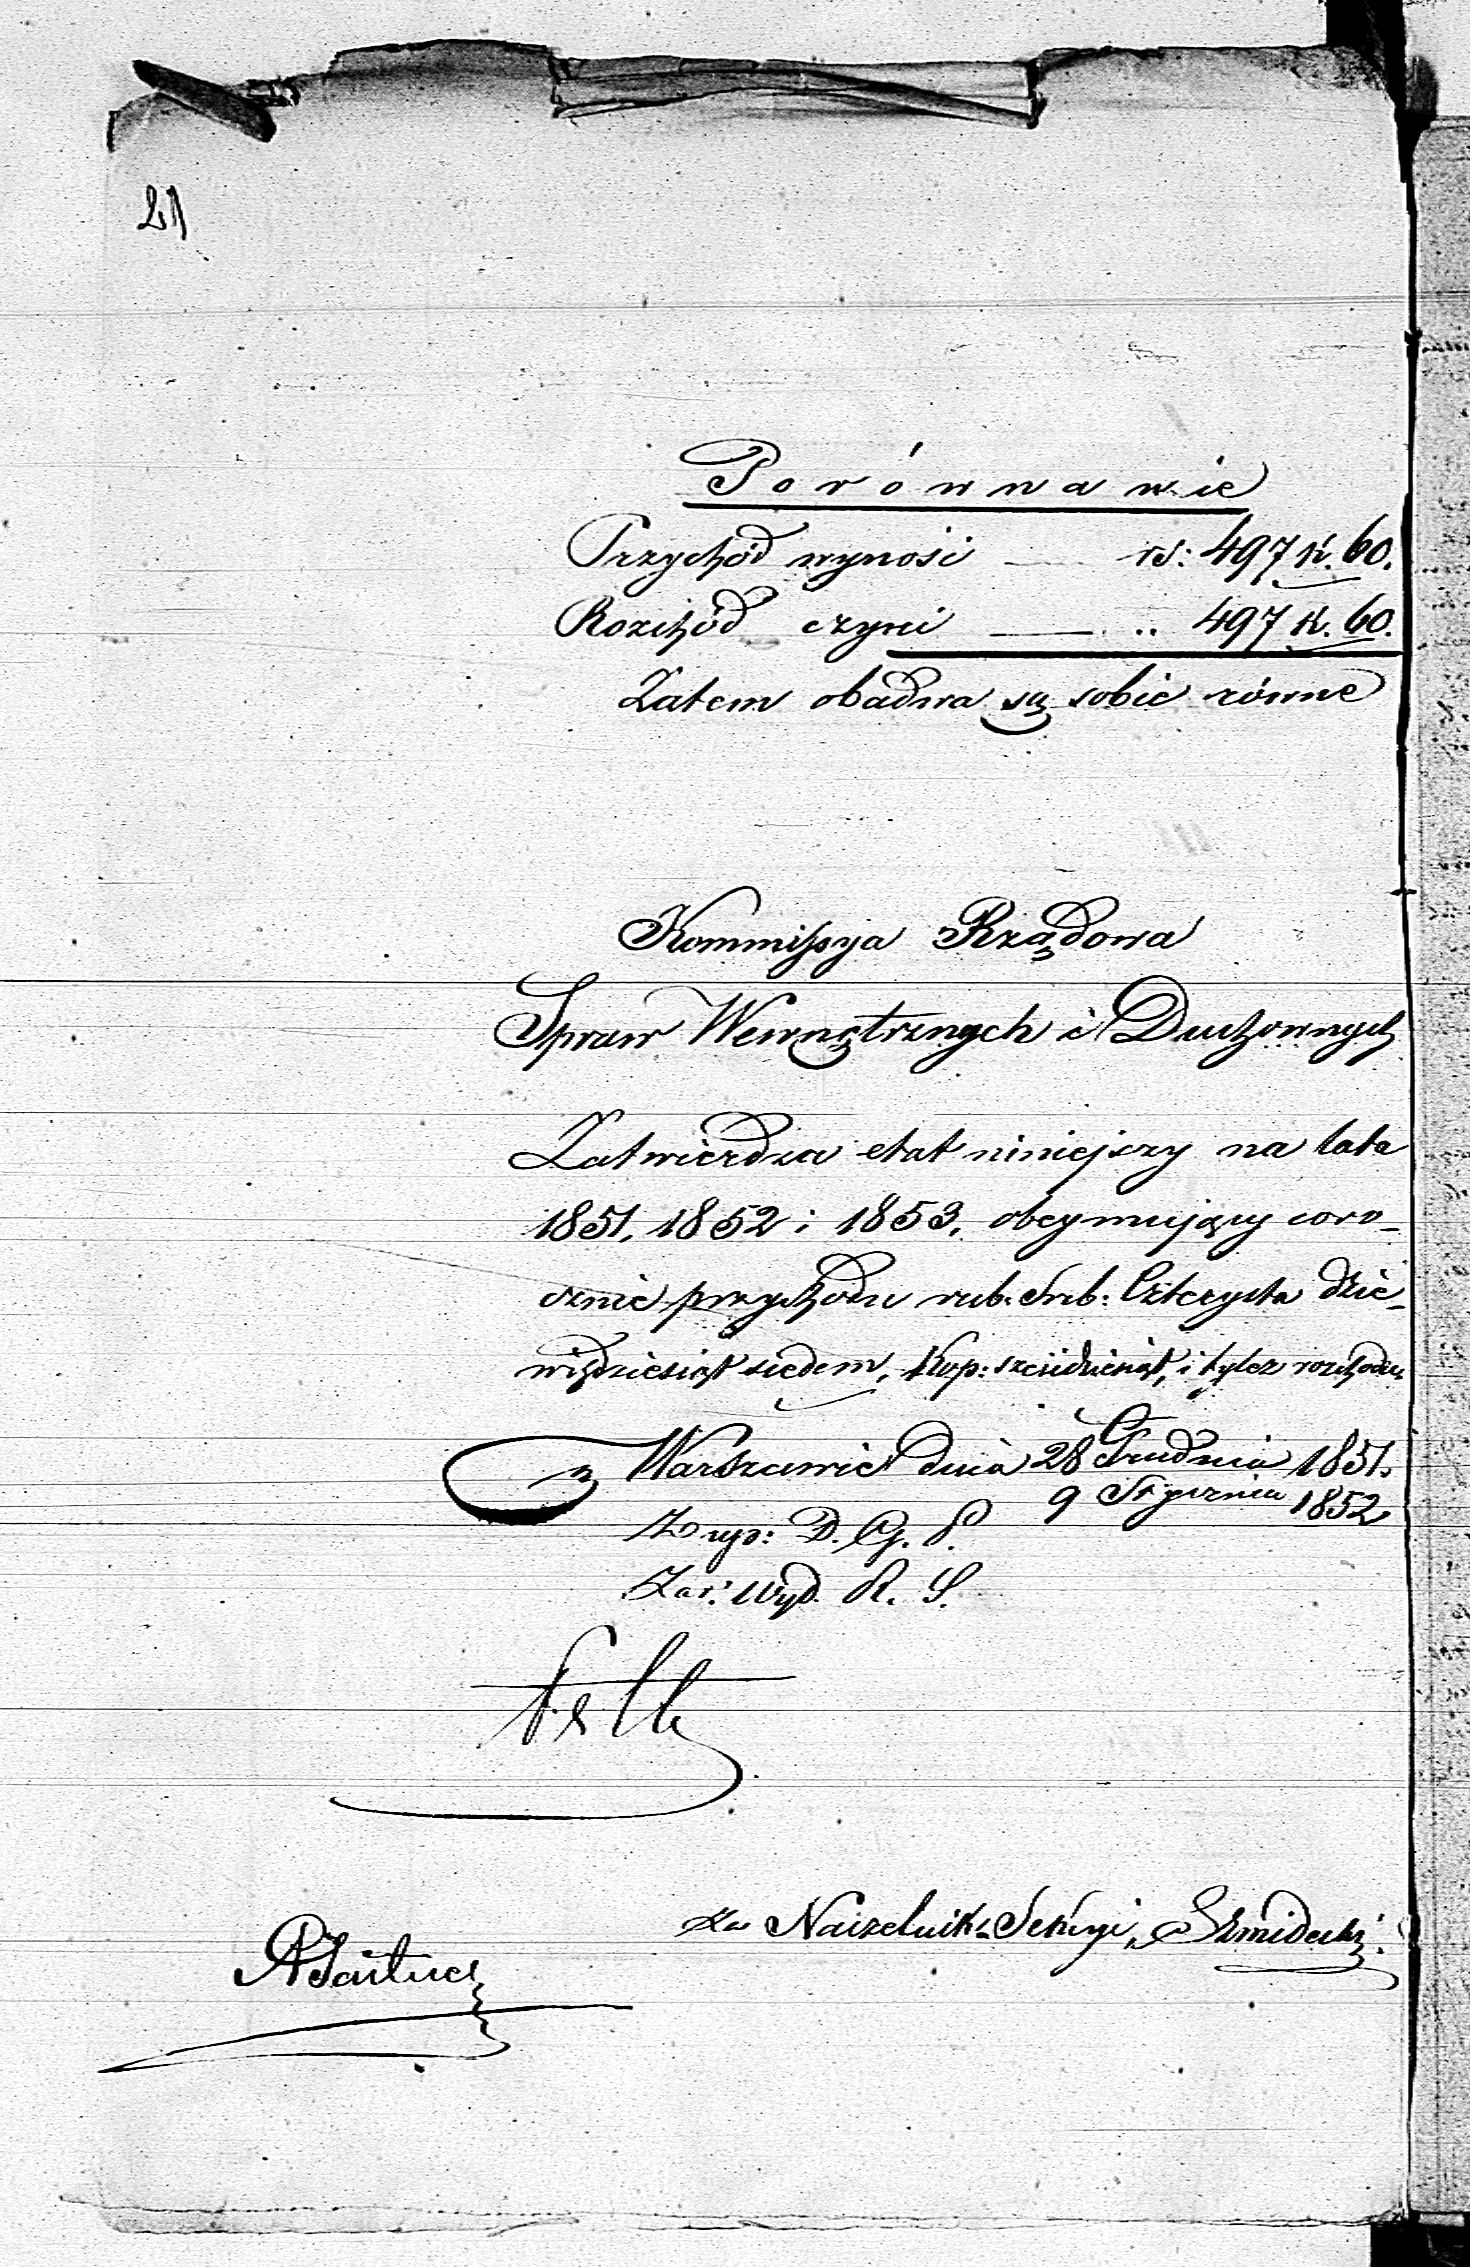 21
Porównanie
Przychód wynosi — rs: 497 k. 60.
Rozchód czyni — „ 497 k. 60.
Zatem obadwa są sobie równe
Kommissya Rządowa
Spraw Wewnętrznych i Duchownych
Zatwierdza etat niniejszy na lata
1851, 1852 i 1853, obeymujący coro-
cznie przychodu rub. Srb: Czterysta dzie-
więdziesiąt siedem, Kop: sześćdziesiąt, i tyleż rozchodu
w Warszawie dnia 28 Grudnia 1851.
9 Stycznia 1852
D. G. P.
Zas: Wyd. R. S.
za Naczelnika Sekcyi, Szmidecki